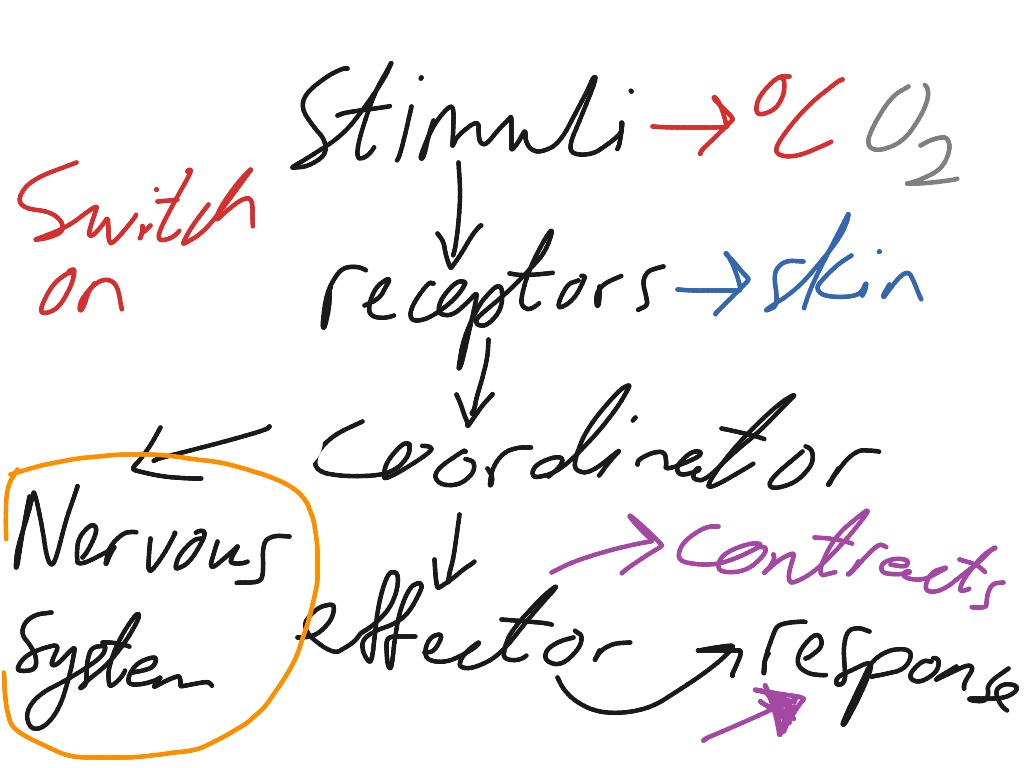 Stimuli → °C O2
Switch
on
receptors → skin
Coordinator
Nervous
System
contracts
effector
response